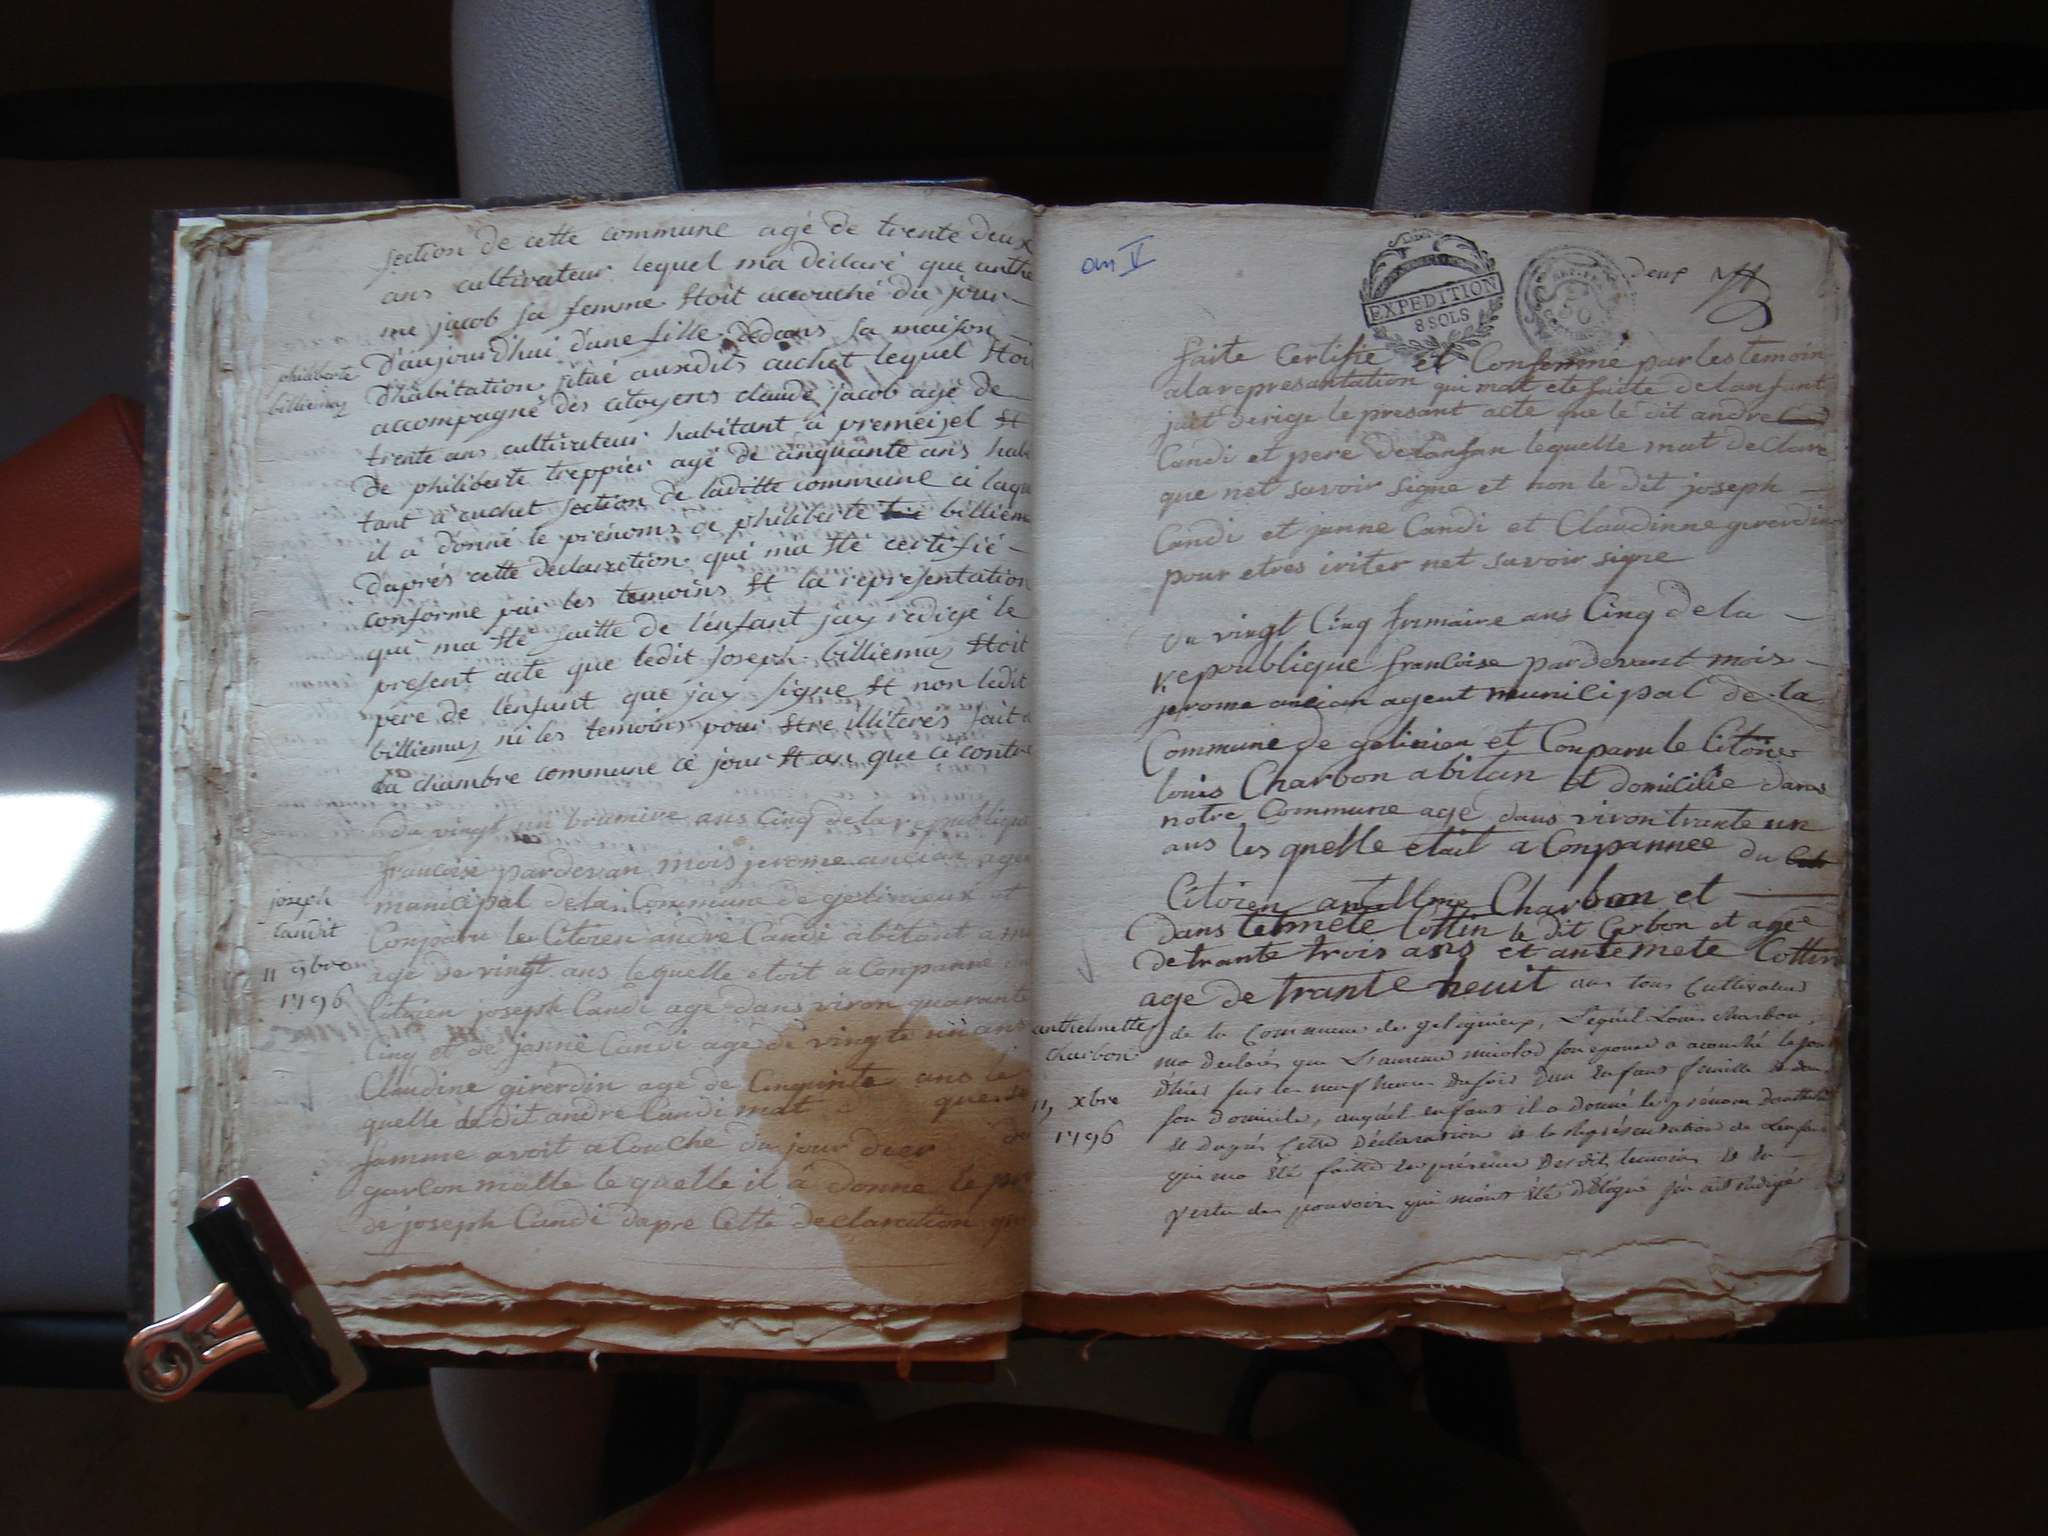 section de cette commune agé de trente deux
ans cultivateur lequel ma déclaré que anthe
me jacob sa femme Etoit accouché du jour
philiberte
billiemaz
D'aujourd'hui d'une fille dedans sa maison
D'habitation situé auxdits cuchet lequel Etoi
accompagné des citoyens claude jacob agé de
trente ans cultivateur habitant à premeizel Et
de philiberte treppier agé de cinquante ans habi
tant a cuchet section de laditte commune a laque
il a donné le prénoms de philiberte billiema
D'aprés cette declaration qui ma Eté certifié
conforme par les temoins Et la representation
qui ma Eté faitte de l'enfant jay redigé le
present acte que ledit Joseph billiemaz Etoit
pere de l'enfant que jay signe Et non ledit
billiemaz ni les temoins pour Etre illiteres fait a
La chambre commune ce jour Et an que ci contre
Du vingt un brumire ans Cinq de la republique
francoise pardevan mois jerome ancian agen
joseph
candit
11 9bre
1796
municipal de la Commune de gelinieux et
Conparu le Citoien andre Candi abitant a
age de vingt ans le quelle etoit a Conpanne du
Citoien joseph Candi age dans viron quarante
Cinq et de janne Candi age de vingte ans
Claudine girerdin age de Cinquinte ans le
quelle de dit andre Candi mat que sa
famme avoit a Couche du jour dier
garson malle le quelle il a donne le pre
de joseph Candi dapre Cette declaration qui
an V
EXPEDITION
8 SOLS
50
deux
faite Certifie et Confermé par les temoin
a la represantation qui mat ete faite de lanfant
jait derige le presant acte que le dit andre
Candi et pere de lanfan lequelle mat declare
que net savoir signe et non le dit joseph
Candi et janne Candi et Claudinne gererdin
pour etres iriter net savoir signe
Du vingt Cinq frimaire ans Cinq de la
republique francoise pardevant mois
jerome ancian agent municipal de la
Commune de gelinieu et Conparu le Citoien
louis Charbon abitan et domicilie dans
notre Commune age dans viron trante un
ans les quelle etait a Conpannee du
Citoien antelme Charbon et
dans temete Cottin le dit Carbon et age
de trante trois ans et antemete Cottin
age de trante neuit ans tous Cultivateur
anthelmette
charbon
11, xbre
1796
de la Commune de geligneux, Lequel Louis charbon,
ma declarés que Laurance micolod son epouse a acouché le jour
Dhier sur les neuf heures du soir d'un Enfant femille de dans
son domicile, auquel enfans il a donné le prénom danthel
Et daprés cette declaration Et la Représentation de Lenfan
qui ma Eté faitte En présence desdits temoins Et En
vertu des pouvoirs qui m'ont Eté délégué j'en ait rédigé